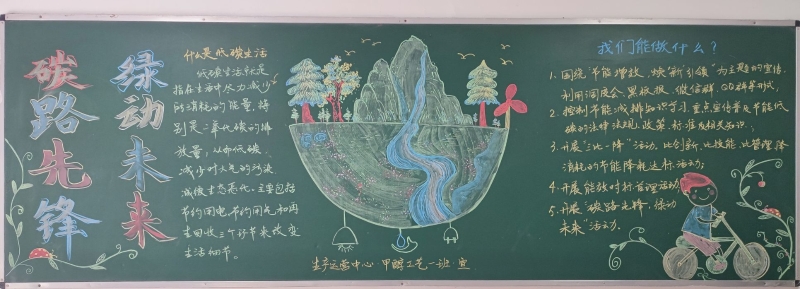 绿动未来
碳路先锋
什么是低碳生活
低碳生活就是
指在生活中尽力减少
所消耗的能量,特
别是二氧化碳的排
放量,从而低碳,
减少对大气的污染
减缓生态恶化,主要包括
节约用电,节约用气和再
生回收三个环节来改变
生活细节。
我们能做什么?
1、围绕“节能增效,焕新引领”为主题的宣传,
利用调度会、黑板报、微信群、QQ群等形式,
2、控制节能减排知识学习,重点宣传普及节能低
碳的法律法规、政策、标准及相关知识;
3、开展“三比一降”活动,比创新、比技能、比管理、降
消耗的节能降耗达标活动;
4、开展能效对标管理活动
5、开展“碳路先锋,绿动
未来”活动。
生产运营中心·甲醇工艺一班·宣